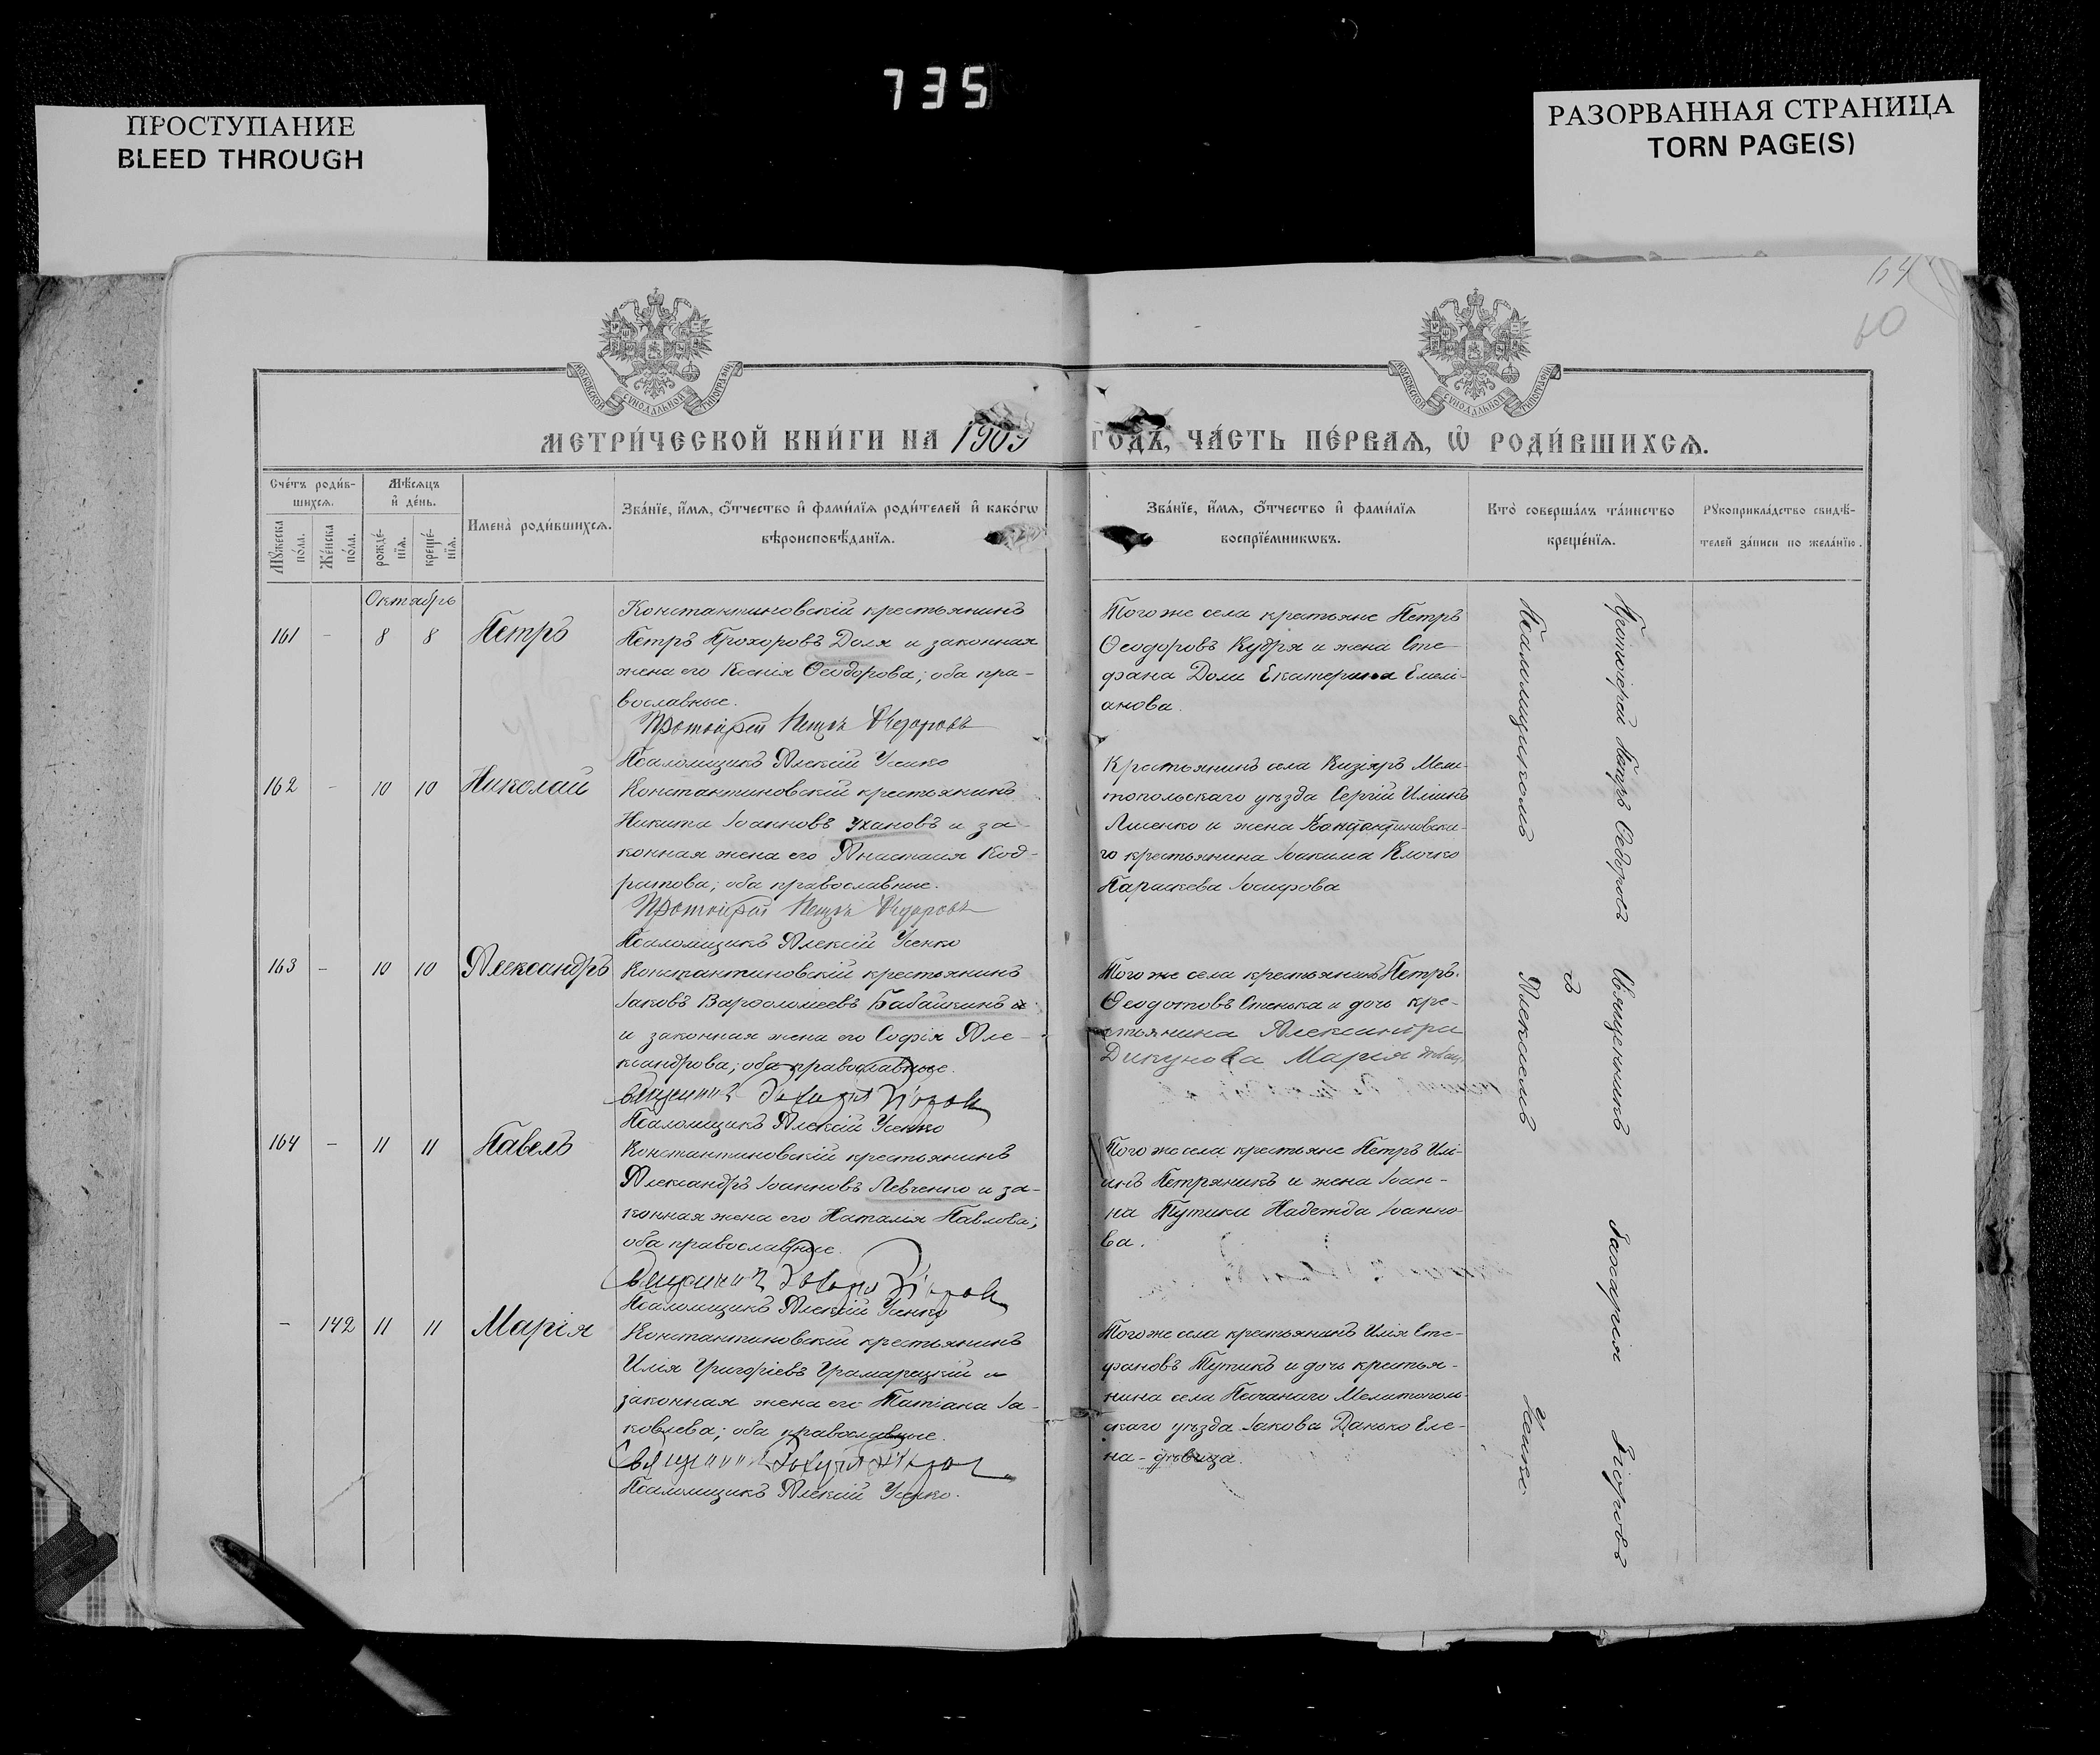 735
ПРОСТУПАНИЕ
BLEED THROUGH
РАЗОРВАННАЯ СТРАНИЦА
TORN PAGE(S)
60
МОСКОВСКОЙ СѴНОДАЛЬНОЙ ТИПОГРАФІИ
МОСКОВСКОЙ СѴНОДАЛЬНОЙ ТИПОГРАФІИ
МЕТРИ́ЧЕСКОЙ КНИ́ГИ НА 1909 ГОДЪ, ЧА́СТЬ ПЕ́РВАѦ, Ѡ҆ РОДИ́ВШИХСѦ.
Сче́тъ роди́в-
шихсѧ.
Мѣ́сѧцъ
и҆ де́нь.
Мꙋ́жеска
по́ла.
Же́нска
по́ла.
рожде́-
нїѧ.
креще́-
нїѧ.
Имена̀ роди́вшихсѧ.
Зва́нїе, и҆́мѧ, ѻ҆́тчество и҆ фами́лїѧ роди́телей и҆ како́гѡ
вѣроисповѣ́данїѧ.
Зва́нїе, и҆́мѧ, ѻ҆́тчество и҆ фами́лїѧ
воспрїе́мникѡвъ.
Кто̀ соверша́лъ та́инство
креще́нїѧ.
Рꙋкоприкла́дство свидѣ́-
телей за́писи по жела́нїю.
Октябрь
161 - 8 8 Петръ
Константиновскій крестьянинъ
Петръ Прохоровъ Доля и законная
жена его Ксенія Ѳеодорова; оба пра-
вославные.
Протоіерей Петръ Ѳедоровъ
Псаломщикъ Алексій Усенко
Того же села крестьяне Петръ
Ѳеодоровъ Кудря и жена Сте-
фана Доли Екатерина Емелі-
анова.
162 - 10 10 Николай
Константиновскій крестьянинъ
Никита Іоанновъ Ухановъ и за-
конная жена его Анастасія Код-
ратова; оба православные.
Протоіерей Петръ Ѳедоровъ
Псаломщикъ Алексій Усенко
Крестьянинъ села Кизіяръ Мели-
топольскаго уѣзда Сергій Иліинъ
Лисенко и жена Константиновска-
го крестьянина Іоакима Клочко
Параскева Іосифова
163 - 10 10 Александръ
Константиновскій крестьянинъ
Іаковъ Варѳоломеевъ Бабайкинъ и
и законная жена его Софія Але-
ксандрова; оба православные.
Священникъ Захарія Кіоровъ
Псаломщикъ Алексій Усенко
Того же села крестьянинъ Петръ
Ѳеодотовъ Стенька и дочь кре-
стьянина Александра
Дикунова Марія дѣвица
164 - 11 11 Павелъ
Константиновскій крестьянинъ
Александръ Іоанновъ Левченко и за-
конная жена его Наталія Павлова;
оба православные.
Священникъ Захарія Кіоровъ
Псаломщикъ Алексій Усенко
Того же села крестьяне Петръ Илі-
инъ Петряникъ и жена Іоан-
на Тутика Надежда Іоанно-
ва.
- 142 11 11 Марія
Константиновскій крестьянинъ
Илія Григоріевъ Грамарецкій и
законная жена его Татіана Іа-
ковлева; оба православные.
Священникъ Захарія Кіоровъ
Псаломщикъ Алексій Усенко.
Того же села крестьянинъ Илія Сте-
фановъ Тутикъ и дочь крестья-
нина села Песчанаго Мелитополь-
скаго уѣзда Іакова Данько Еле-
на - дѣвица.
Протоіерей Петръ Ѳедоровъ
Священникъ Захарія Кіоровъ
съ
Псаломщикомъ Алексіемъ Усенко.